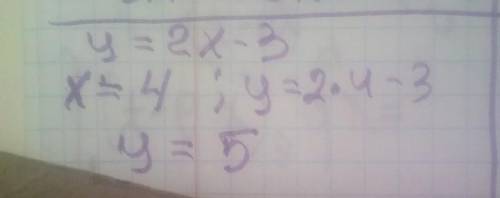 y = 2x - 3
x = 4 ; y = 2·4 - 3
y = 5